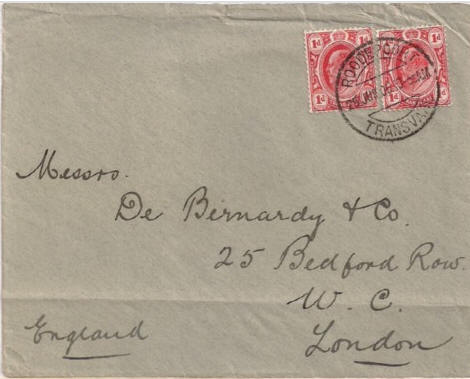 1d 1d 1d
1d 1d
ROODEPOORT
TRANSVAAL
Messrs.
De Bernardy & Co.
25 Bedford Row.
W. C.
England
London